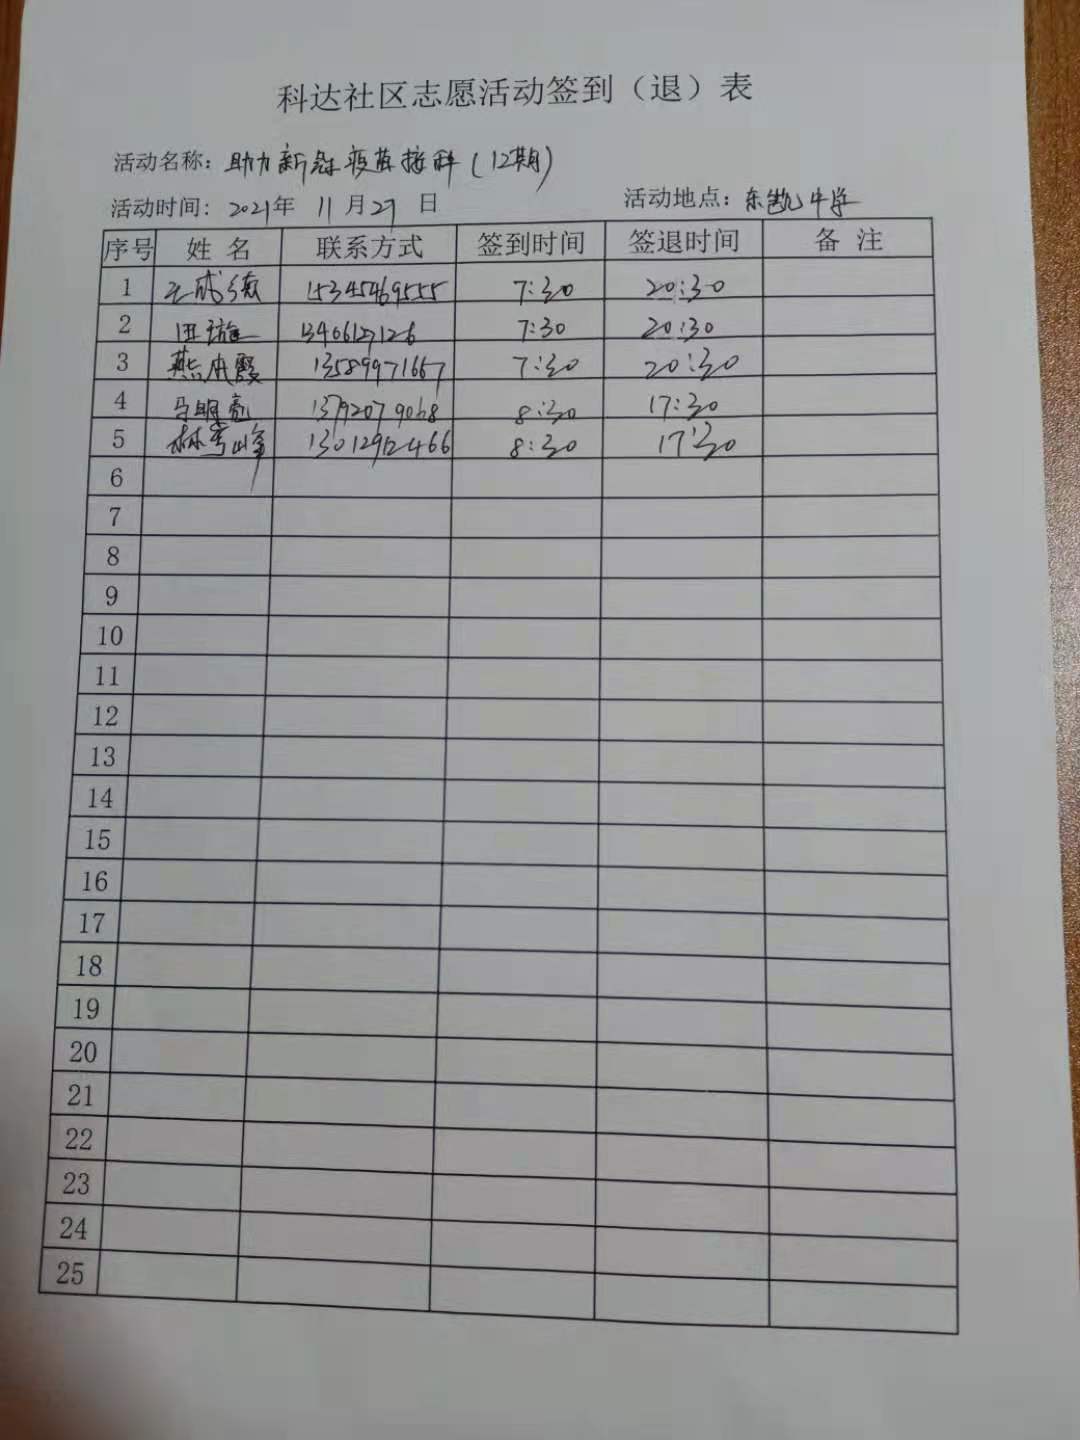 科达社区志愿活动签到（退）表
活动名称：助力新冠疫苗接种（12期）
活动时间：2021年 11月27日 活动地点：东凯中学
序号 姓名 联系方式 签到时间 签退时间 备注
1 15345469555 7:30 20:30
2 田璇 13406127126 7:30 20:30
3 燕成霞 13589971667 7:30 20:30
4 马明亮 13792079068 8:30 17:30
5 林雪峰 13012912466 8:30 17:30
6
7
8
9
10
11
12
13
14
15
16
17
18
19
20
21
22
23
24
25